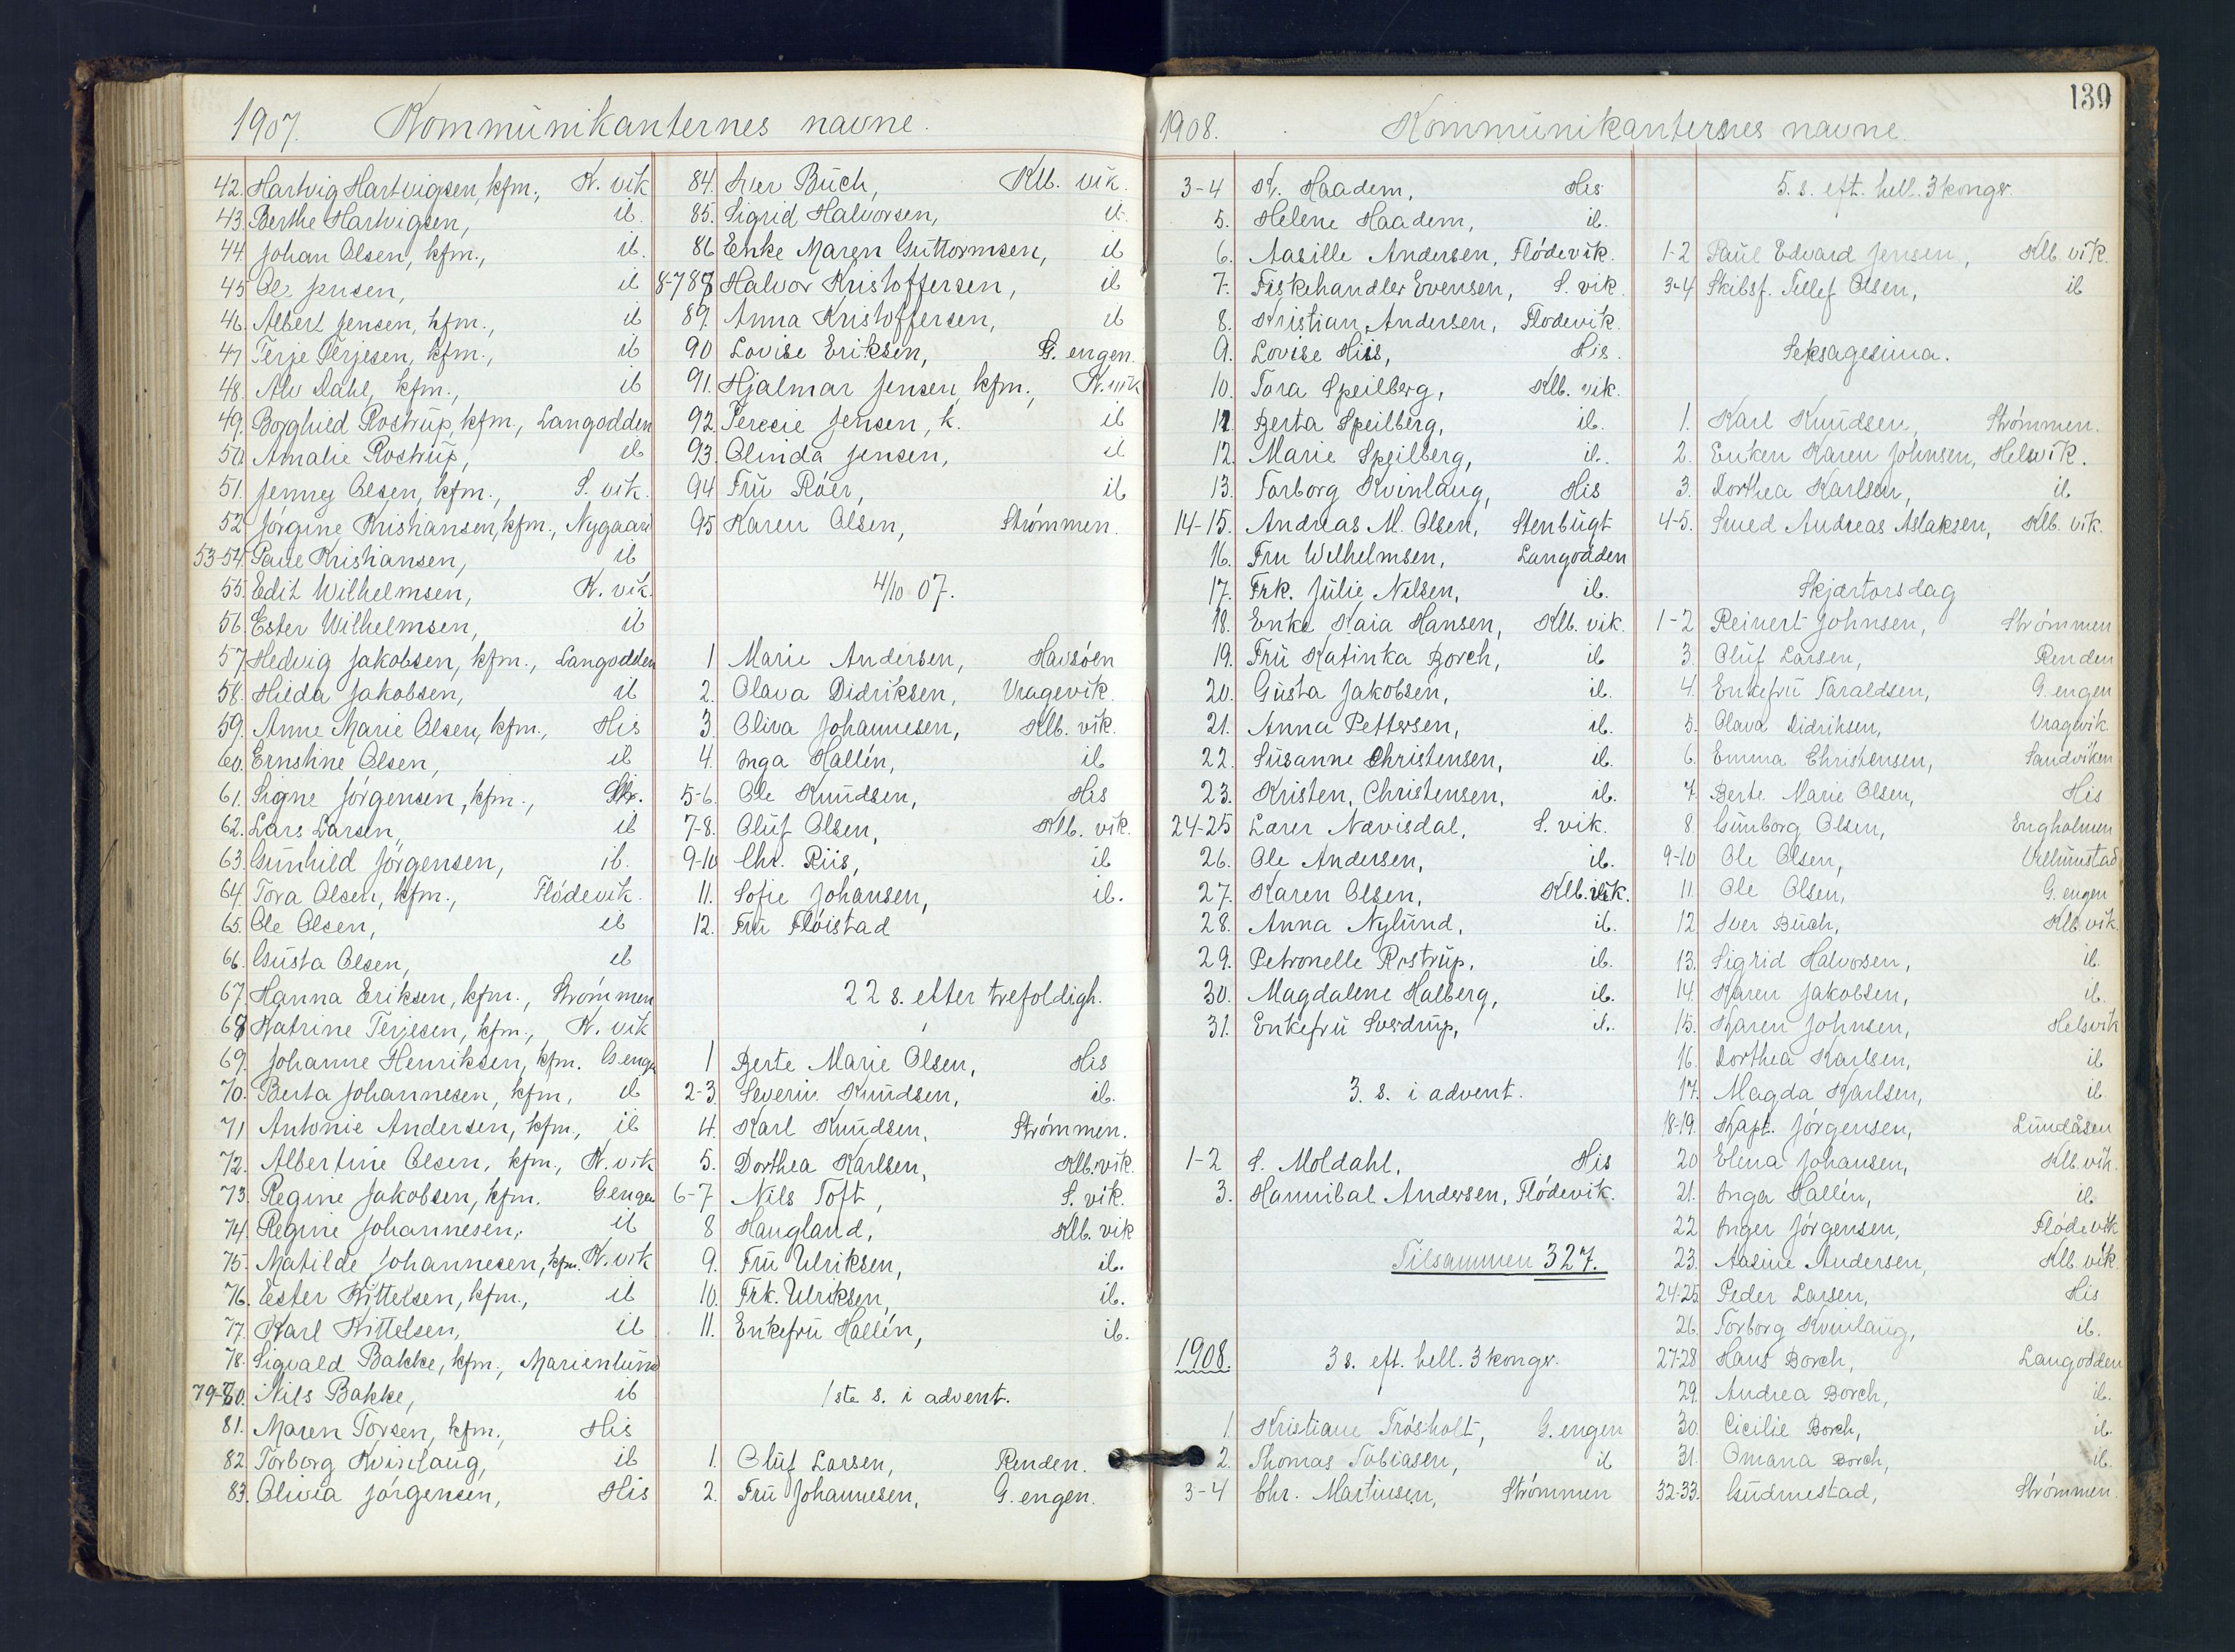 1907. Kommunikanternes navne.
42. Hartvig Hartvigsen, kfm., K. vik
43. Berthe Hartvigsen, ib.
44 Johan Olsen, kfm., ib.
45 Ole Jensen, ib
46. Albert Jensen, kfm., ib
47 Terje Terjesen, kfm., ib
48. Alv Dahl, kfm., ib
49. Borghild Rostrup, kfm., Langodden
50. Amalie Rostrup, ib
51. Jenney Olsen, kfm., S. vik.
52 Jörgine Kristiansen, kfm., Nygaard
53-54. Paul Kristiansen, ib
55. Edit Wilhelmsen, K. vik.
56. Ester Wilhelmsen, ib
57 Hedvig Jakobsen, kfm., Langodden
58. Hilda Jakobsen, ib
59. Anne Marie Olsen, kfm., His
60. Ernstine Olsen, ib
61. Signe Jörgensen, kfm.,
62. Lars Larsen, ib
63. Gunhild Jörgensen, ib.
64. Tora Olsen, kfm., Flödevik.
65. Ole Olsen, ib
66. Gusta Olsen, ib
67. Hanna Eriksen, kfm., Strömmen
68 Katrine Terjesen, kfm., K. vik
69. Johanne Henriksen, kfm. G engen
70. Berta Johannesen, kfm, ib
71 Antonie Andersen, kfm., ib
72. Albertine Olsen, kfm., K. vik
73. Regine Jakobsen, kfm. G engen
74. Regine Johannesen, ib
75. Matilde Johannesen, kfm. K. vik
76. Ester Kittelsen, kfm., ib
77. Karl Kittelsen, ib
78. Sigvald Bakke, kfm., Marienlund
79-80. Nils Bakke, ib
81. Maren Torsen, kfm., His
82. Torborg Kvinlaug, ib
83. Olivia Jörgensen, His
84. Iver Buch, Klb. vik.
85. Sigrid Halvorsen, ib
86 Enke Maren Guttormsen, ib
8-788 Halvor Kristoffersen, ib
89. Anna Kristoffersen, ib
90 Lovise Eriksen, G. engen.
91. Hjalmar Jensen, kfm., K. vik
92. Terecie Jensen, k. ib
93. Olinda Jensen, ib
94 Fru Röer, ib
95 Karen Olsen, Strömmen.
4/10 07.
1 Marie Andersen, Havsöen
2. Olava Didriksen, Vragevik.
3. Oliva Johannesen, Klb. vik.
4. Inga Hallén, ib
5-6. Ole Knudsen, His
7-8. Oluf Olsen, Klb. vik.
9-10 Chr. Riis, ib
11. Sofie Johansen, ib.
12. Fru Flöistad
22 s. efter trefoldigh.
1 Berte Marie Olsen, His
2-3. Severin Knudsen, ib.
4. Karl Knudsen, Strömmen.
5. Dorthea Karlsen, Klb. vik.
6-7 Nils Toft, S. vik.
8 Haugland, Klb. vik
9. Fru Ulriksen, ib.
10. Frk. Ulriksen, ib.
11. Enkefru Hallén, ib.
1ste s. i advent.
1. Oluf Larsen, Renden.
2. Fru Johannesen, G. engen.
139
1908. Kommunikanternes navne.
3-4 K. Haadem, His
5. Helene Haadem, ib.
6. Aasille Andersen, Flödevik.
7. Fiskehandler Evensen, S. vik.
8. Kristian Andersen, Flodevik.
9. Lovise Hiis, His.
10. Tora Speilberg, Klb. vik.
11. Berta Speilberg, ib.
12. Marie Speilberg, ib.
13. Torborg Kvinlaug, His
14-15. Andreas M. Olsen, Stenbugt
16. Fru Wilhelmsen, Langodden
17. Frk. Julie Nilsen, ib.
18. Enke Kaia Hansen, Klb. vik.
19. Fru Katinka Borch, ib
20. Gusta Jakobsen, ib.
21. Anna Pettersen, ib.
22. Susanne Christensen, ib.
23. Kristen, Christensen, ib.
24-25 Lærer Nævisdal, S. vik.
26. Ole Andersen, ib.
27. Karen Olsen, Klb. vik.
28. Anna Nylund, ib.
29. Petronelle Rostrup, ib.
30. Magdalene Halberg, ib.
31. Enkefru Sverdrup, ib.
3. s. i advent.
1-2 S. Moldahl, His
3. Hannibal Andersen, Flödevik.
Tilsammen 327.
1908. 3 s. eft. hell. 3 kongr.
1. Kristiane Trösholt, G. engen
2. Thomas Tobiasen, ib
3-4 Chr. Martinsen, Strömmen
5. s. eft. hell. 3 kongr.
1-2 Paul Edvard Jensen, Klb. vik.
3-4 Skibsf. Tellef Olsen, ib
Seksagesima.
1. Karl Knudsen, Strömmen.
2. Enken Karen Johnsen, Helsvik.
3. Dorthea Karlsen, ib.
4-5. Smed Andreas Aslaksen, Klb. vik.
Skjærtorsdag
1-2 Reinert Johnsen, Strömmen
3. Oluf Larsen, Renden
4. Enkefru Taraldsen, G. engen
5. Olava Didriksen, Vragevik.
6. Emma Christensen, Sandviken
7. Berte Marie Olsen, His
8. Gunborg Olsen, Engholmen
9-10 Ole Olsen,
11 Ole Olsen, G. engen
12 Iver Buch, Klb. vik.
13. Sigrid Halvorsen, ib.
14. Karen Jakobsen, ib.
15. Karen Johnsen, Helsvik
16. Dorthea Karlsen, ib
17. Magda Karlsen, ib.
18-19. Kapt. Jörgensen, Lundåsen
20 Elina Johansen, Klb. vik.
21. Inga Hallén, ib.
22 Inger Jörgensen, Flödevik
23. Aasine Andersen, Klb vik.
24-25 Peder Larsen, His
26. Torborg Kvinlaug, ib.
27-28 Hans Borch, Langodden
29. Andrea Borch, ib.
30. Cicilie Borch, ib.
31. Omana Borch, ib.
32-33. Gudmestad, Strömmen.